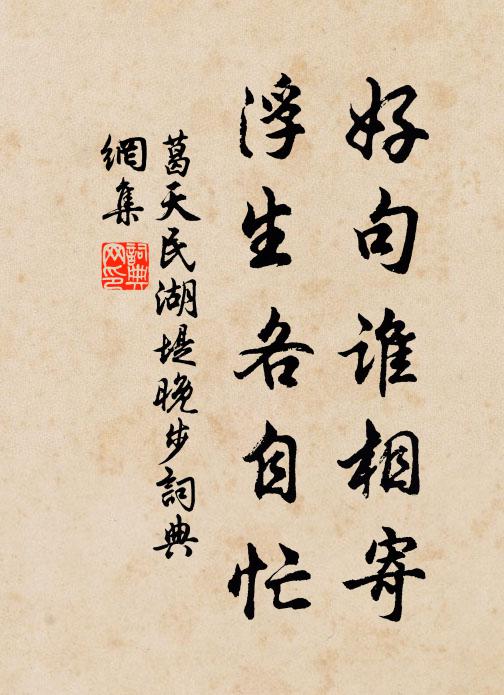 好句谁相寄
浮生各自忙
葛天民湖堤晚步詞典
網集
詞典
网印